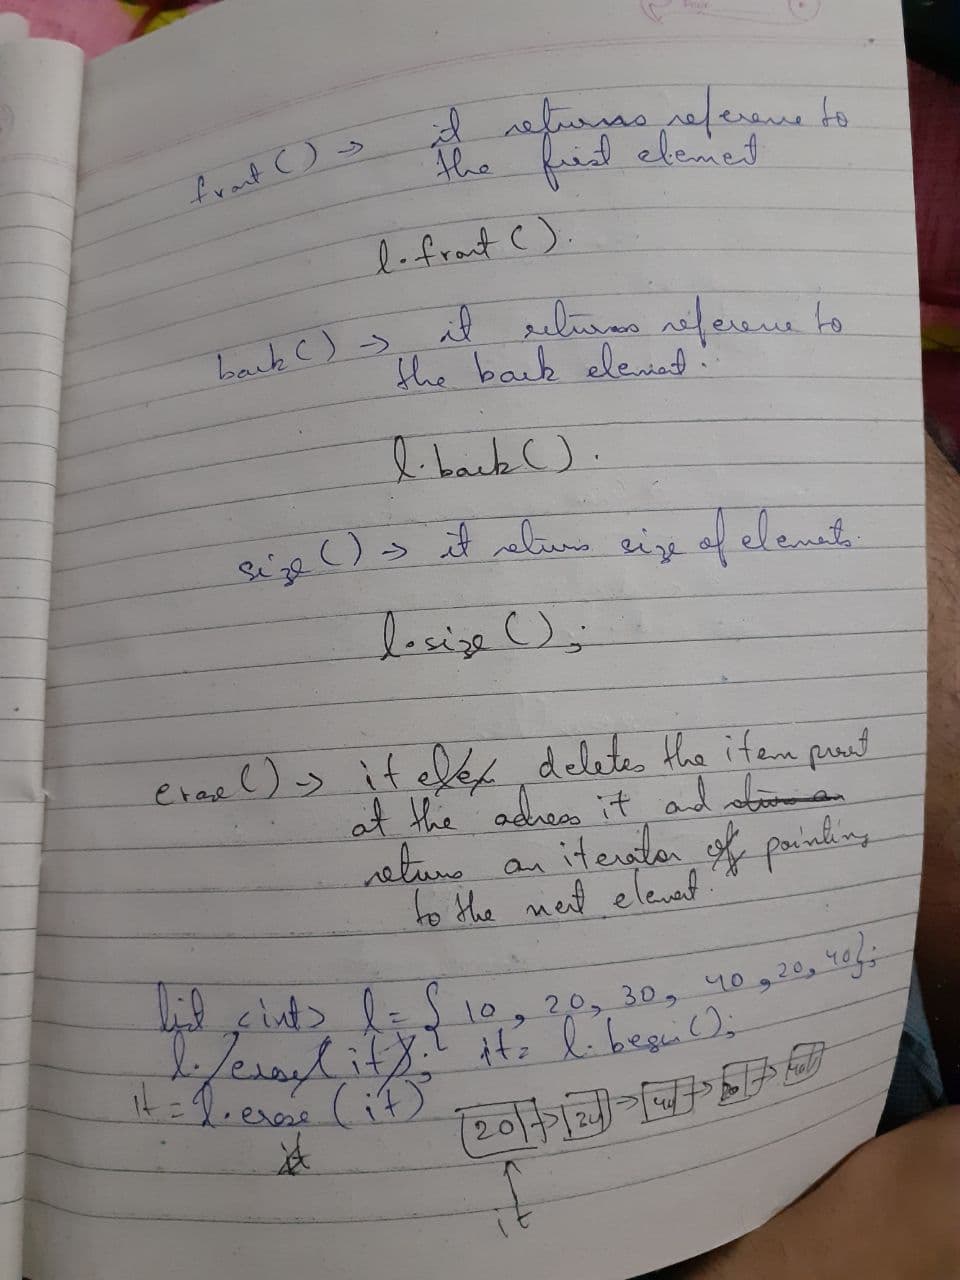 front() → it returns reference to
the first element
l.front().
back() → it returns reference to
the back element.
l.back().
size() → it returns size of elements.
l.size();
erase() → it deletes the item
at the adress it and
returns an iterator pointing
to the next element.
list <int> l = { 10, 20, 30, 40, 20, 40};
l.erase(it); it = l.begin();
it = l.erase(it)
20 → → 40 → → 40
it